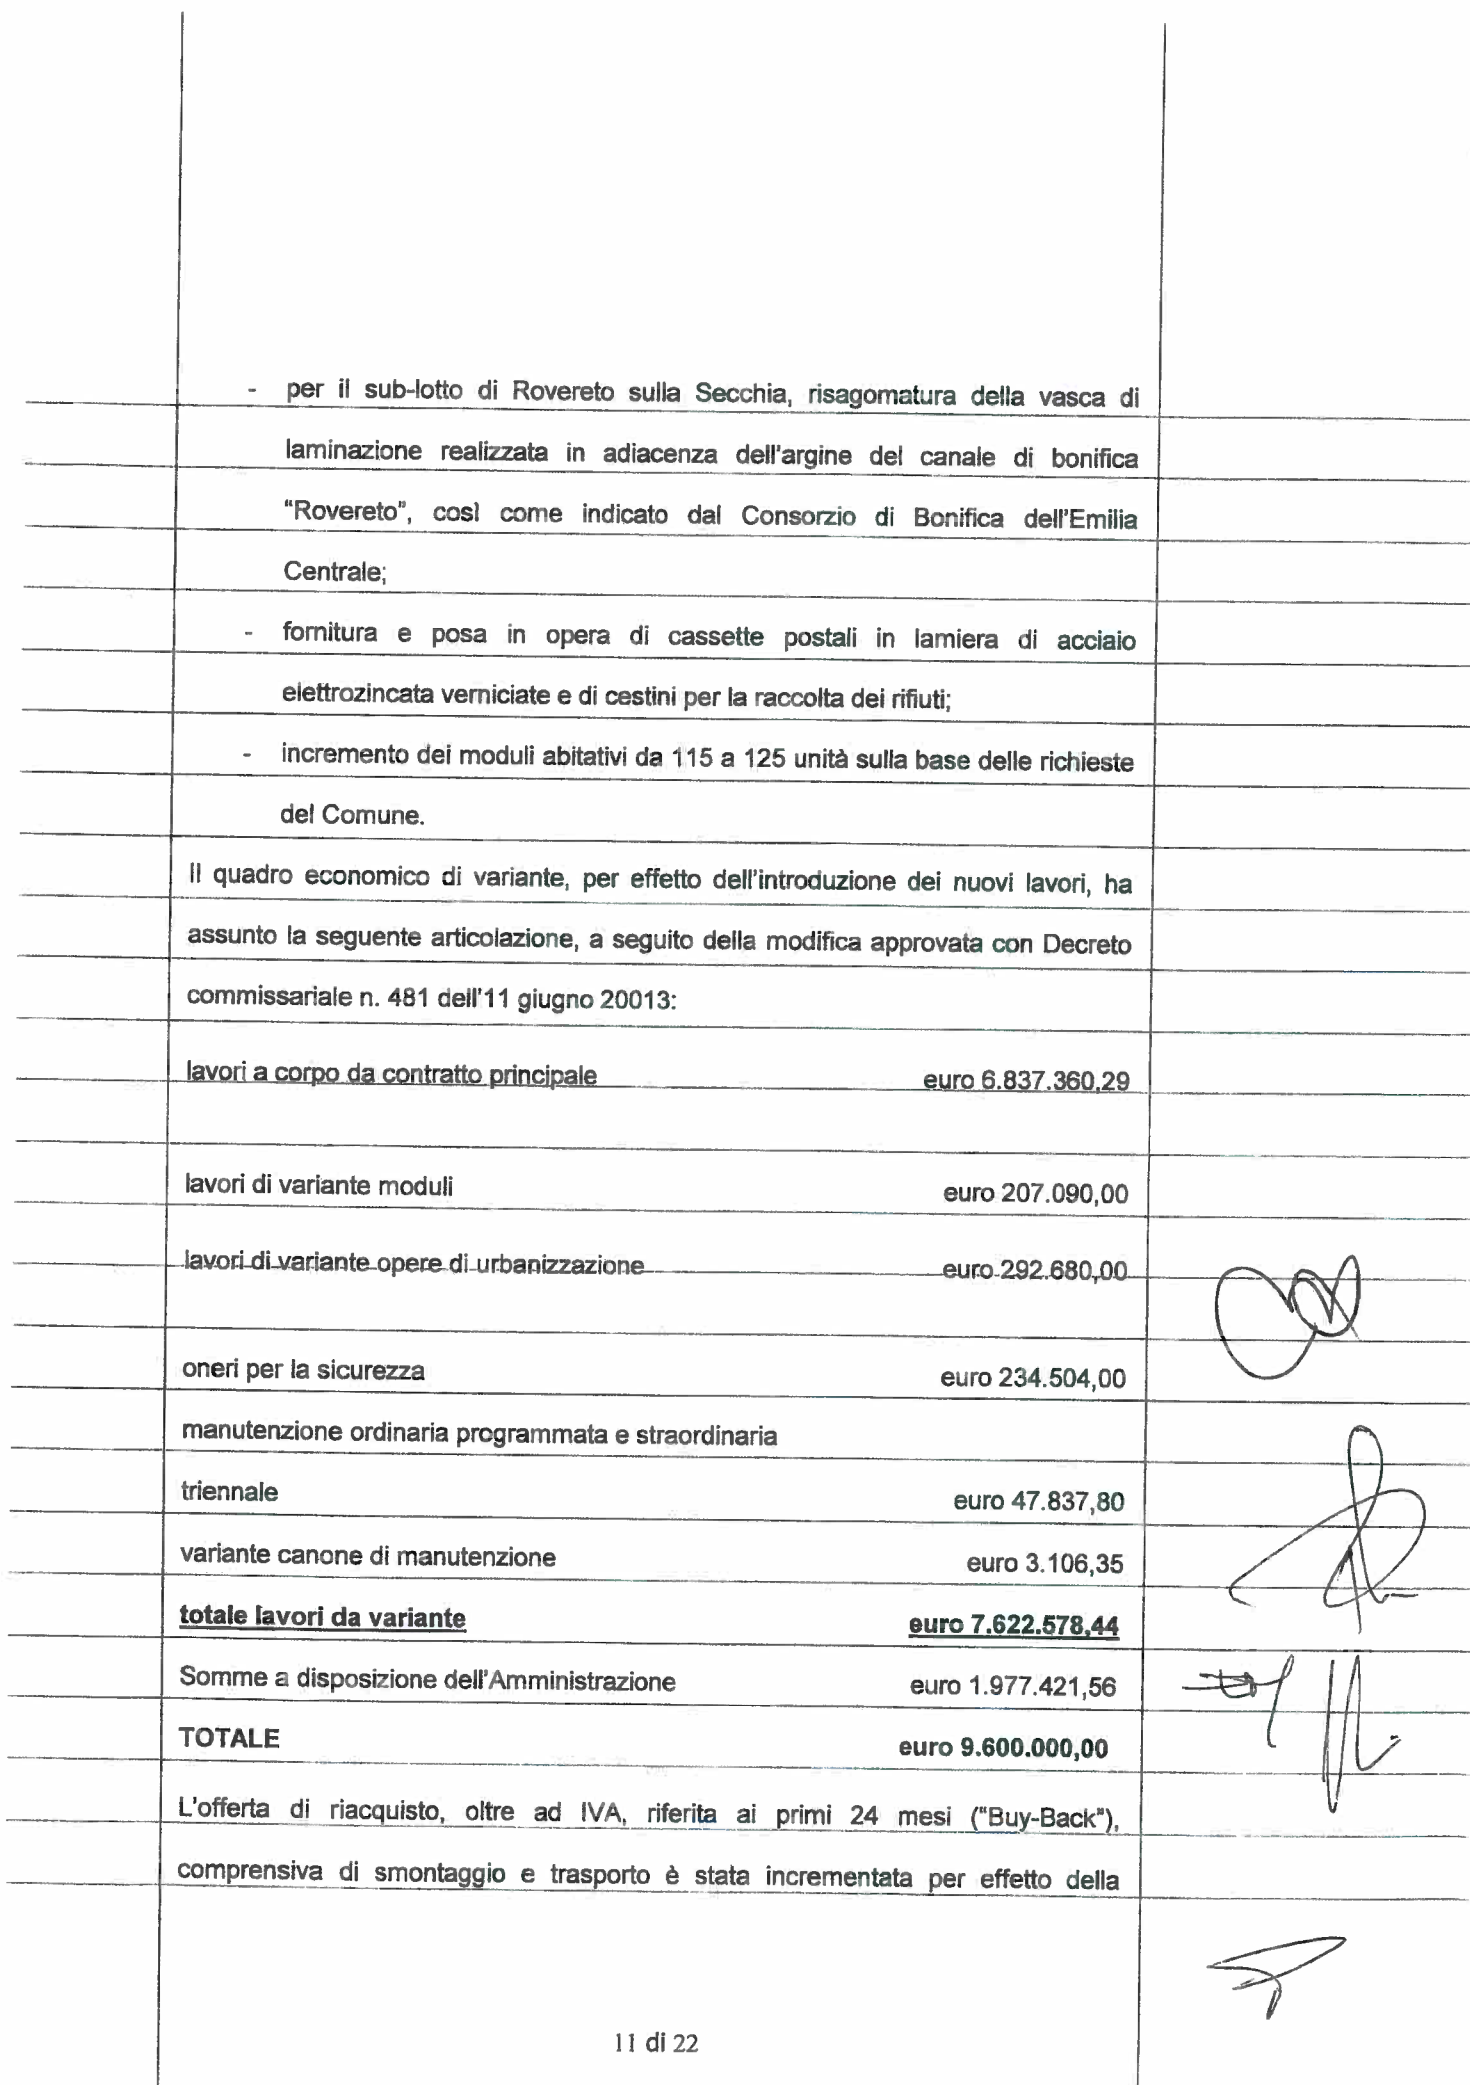 - per il sub-lotto di Rovereto sulla Secchia, risagomatura della vasca di
laminazione realizzata in adiacenza dell'argine del canale di bonifica
"Rovereto", così come indicato dal Consorzio di Bonifica dell'Emilia
Centrale;
- fornitura e posa in opera di cassette postali in lamiera di acciaio
elettrozincata verniciate e di cestini per la raccolta dei rifiuti;
- incremento dei moduli abitativi da 115 a 125 unità sulla base delle richieste
del Comune.
Il quadro economico di variante, per effetto dell'introduzione dei nuovi lavori, ha
assunto la seguente articolazione, a seguito della modifica approvata con Decreto
commissariale n. 481 dell'11 giugno 20013:
lavori a corpo da contratto principale euro 6.837.360,29
lavori di variante moduli euro 207.090,00
lavori di variante opere di urbanizzazione euro 292.680,00
oneri per la sicurezza euro 234.504,00
manutenzione ordinaria programmata e straordinaria
triennale euro 47.837,80
variante canone di manutenzione euro 3.106,35
totale lavori da variante euro 7.622.578,44
Somme a disposizione dell'Amministrazione euro 1.977.421,56
TOTALE euro 9.600.000,00
L'offerta di riacquisto, oltre ad IVA, riferita ai primi 24 mesi ("Buy-Back"),
comprensiva di smontaggio e trasporto è stata incrementata per effetto della
11 di 22